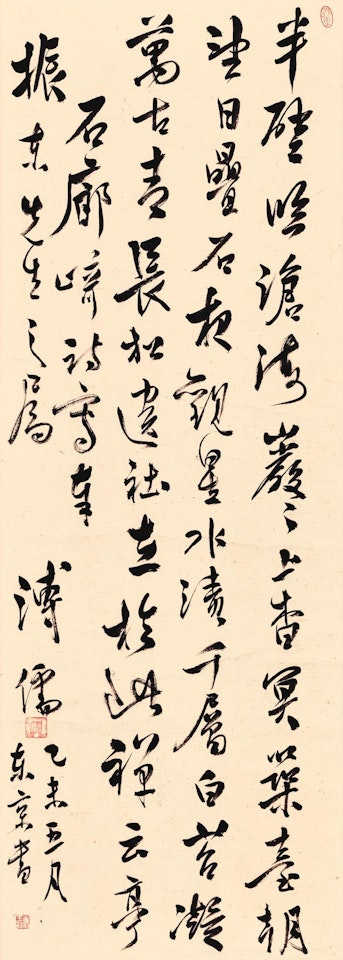 半壁臨滄海巖々上杳冥築臺朝
望日疊石夜觀星水漬千層白苔凝
萬古青長松遺社在於此禪云亭
石廊崎詩寫奉
振東先生之屬
溥儒
乙未五月
東京書